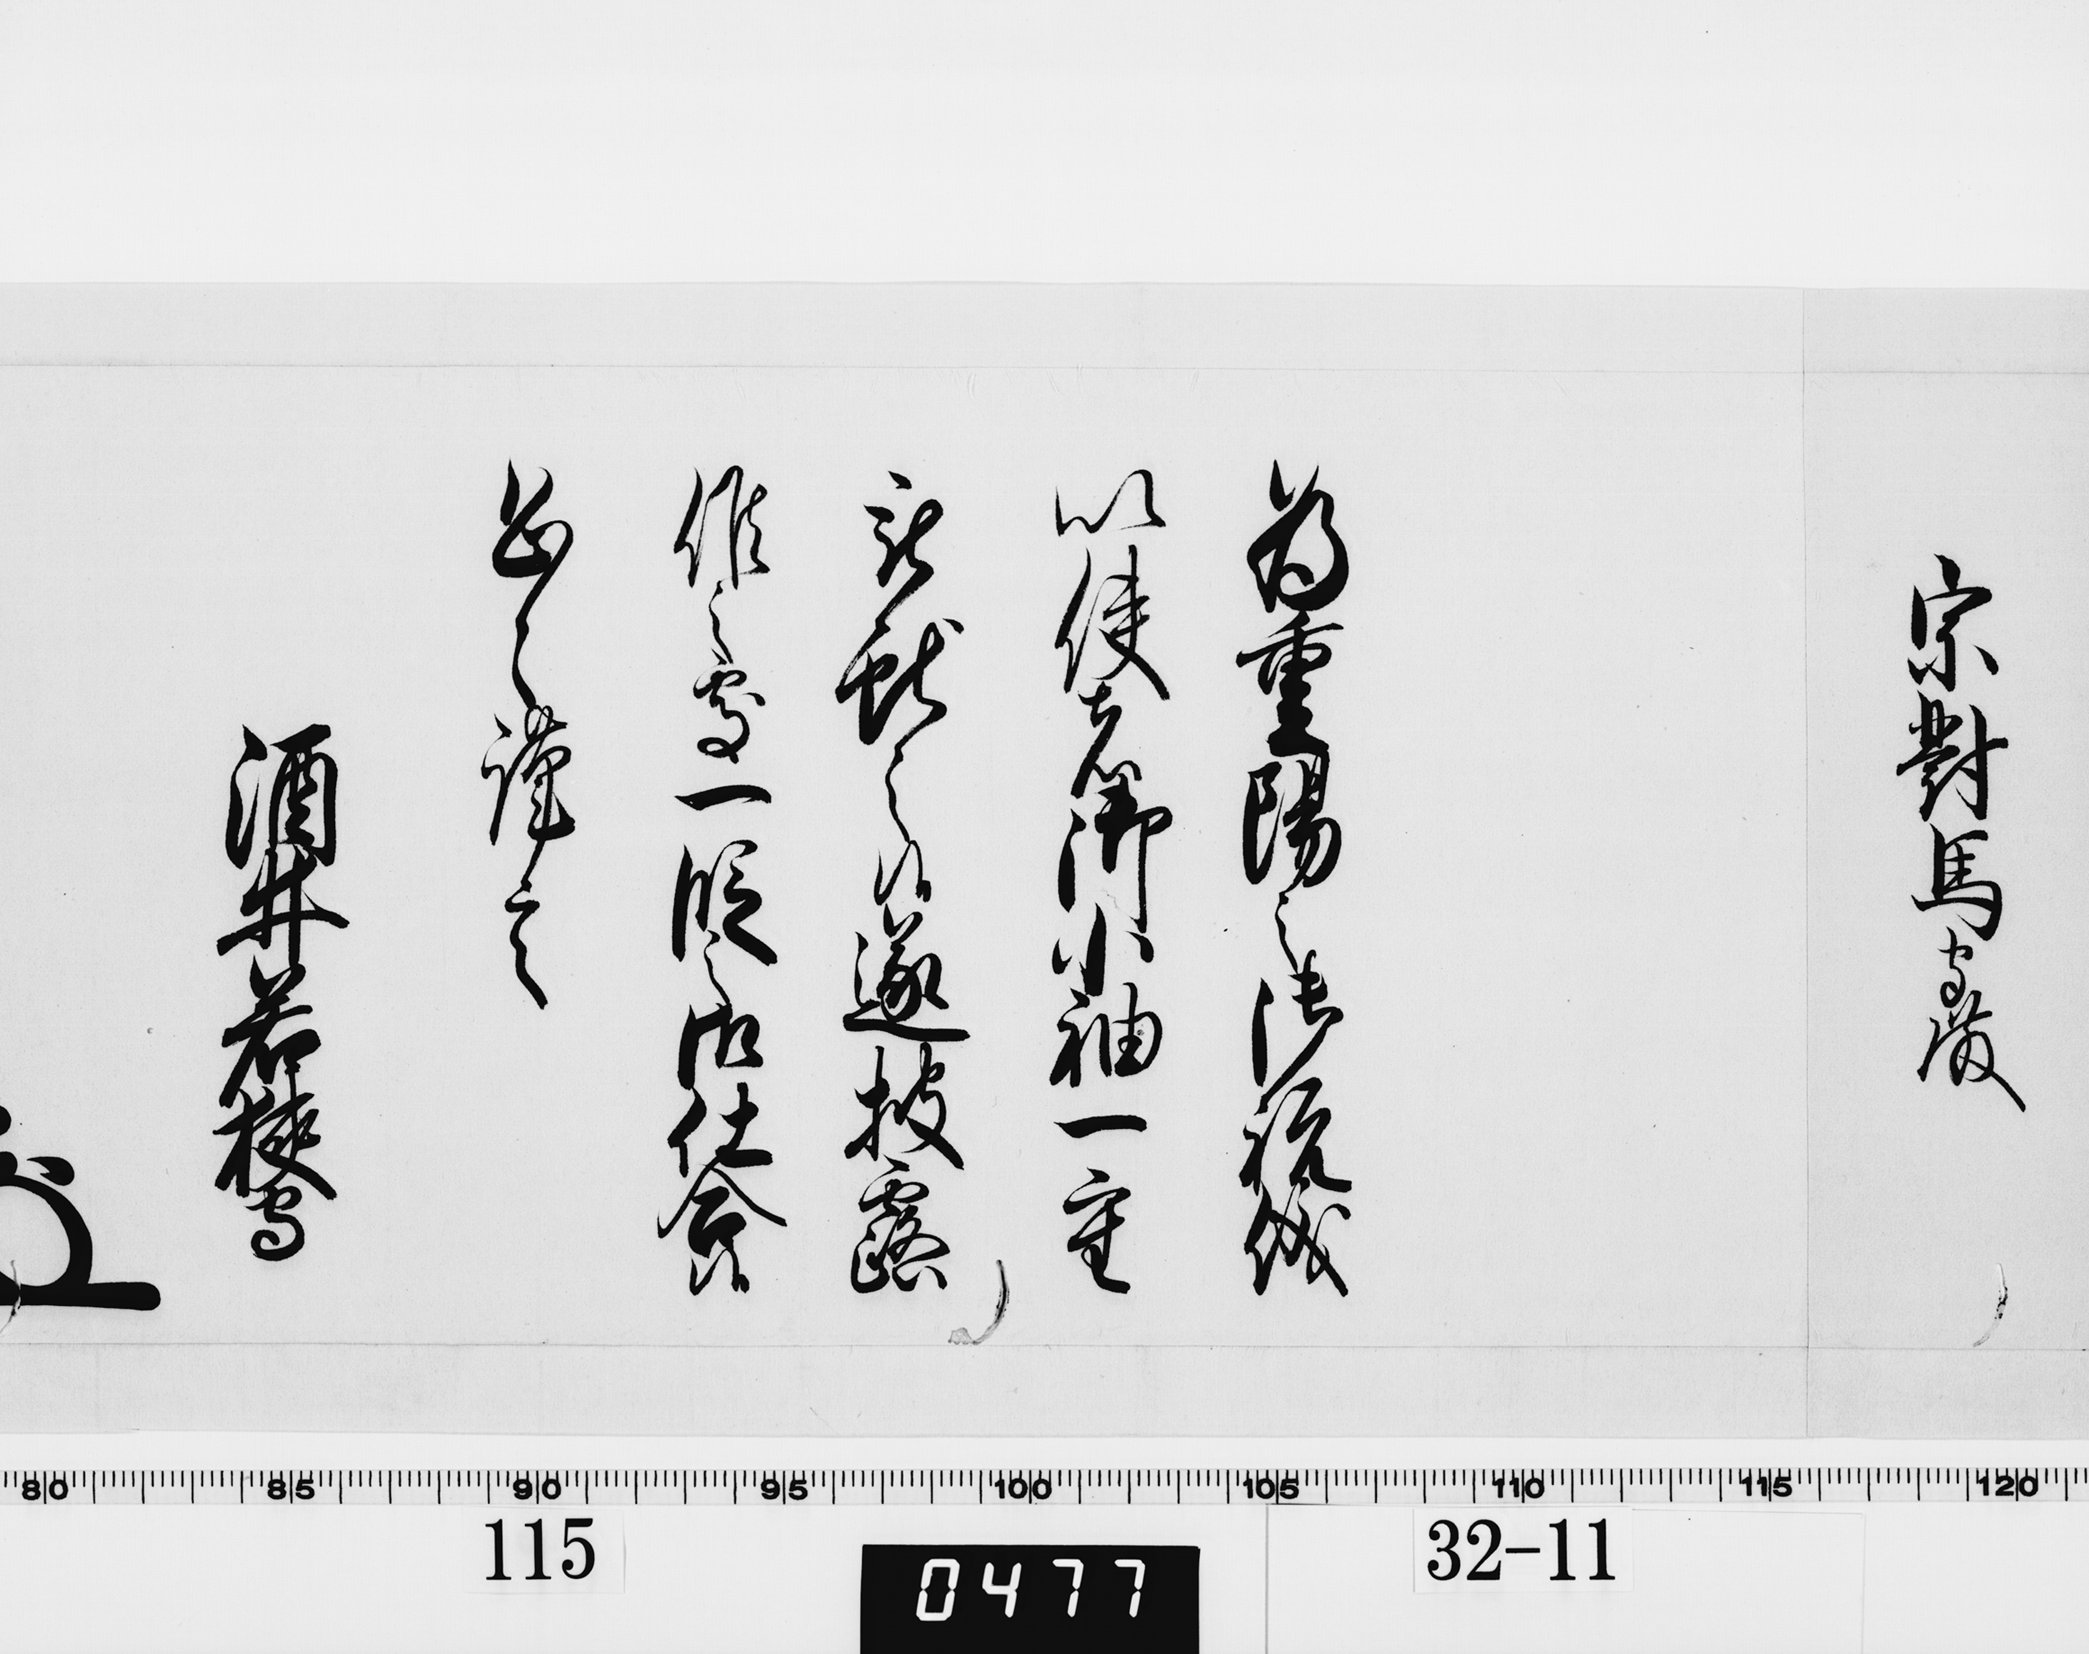 宗對馬守殿
為重陽之御祝儀
以使者御小袖一重
被献之候遂披露
候之處一段之御仕合候
恐々謹言
酒井若狹守
80 85 90 95 100 105 110 115 120
115
32-11
0477